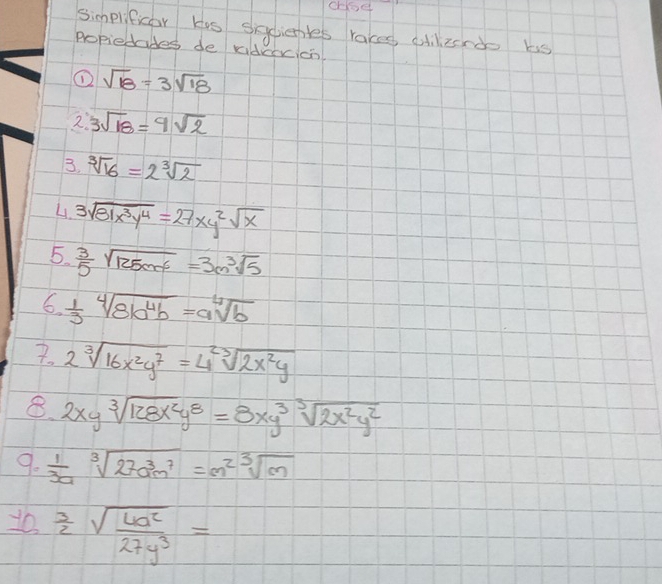 clase
Simplificar los siguientes raices utilizando las
propiedades de radicación.
① √18 = 3√18
2. 3√18 = 9√2
3. ∛16 = 2∛2
4. 3√81x³y⁴ = 27xy²√x
5. 3/5 √125m⁶ = 3m³√5
6. 1/3 ∜81a⁴b = a∜b
7. 2∛16x²y⁷ = 4²∛2x²y
8. 2xy ∛128x²y⁸ = 8xy³ ∛2x²y²
9. 1/3a ∛27a³m⁷ = m²∛m
10. 3/2 √4a²/27y³ =